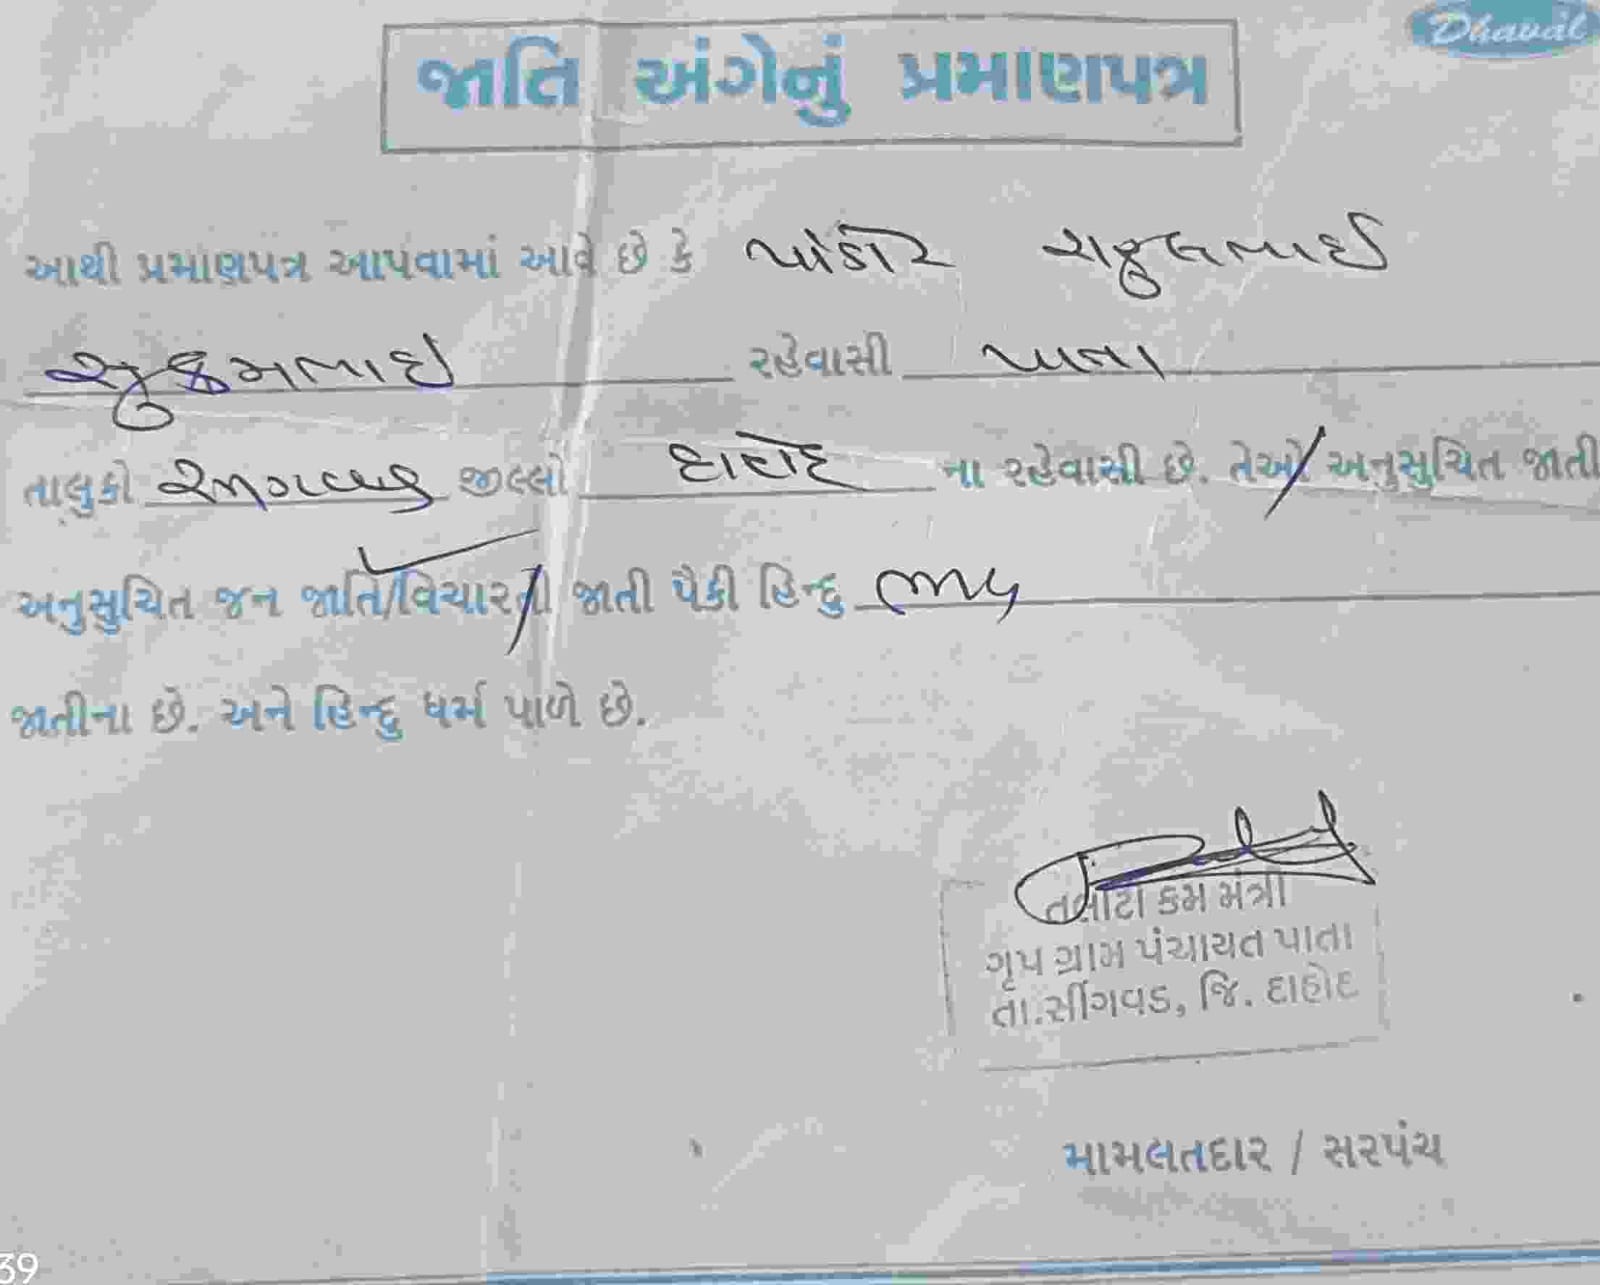 Dhaval
જાતિ અંગેનું પ્રમાણપત્ર
આથી પ્રમાણપત્ર આપવામાં આવે છે કે પાંડોર રાહુલભાઈ
રહેવાસી પાતા
તાલુકો જીલ્લો દાહોદ ના રહેવાસી છે. તેઓ/ અનુસુચિત જાતી
અનુસુચિત જન જાતિ/વિચારતી જાતી પૈકી હિન્દુ
જાતીના છે. અને હિન્દુ ધર્મ પાળે છે.
તલાટી કમ મંત્રી
ગૃપ ગ્રામ પંચાયત પાતા
તા.સીંગવડ, જિ. દાહોદ
મામલતદાર / સરપંચ
39